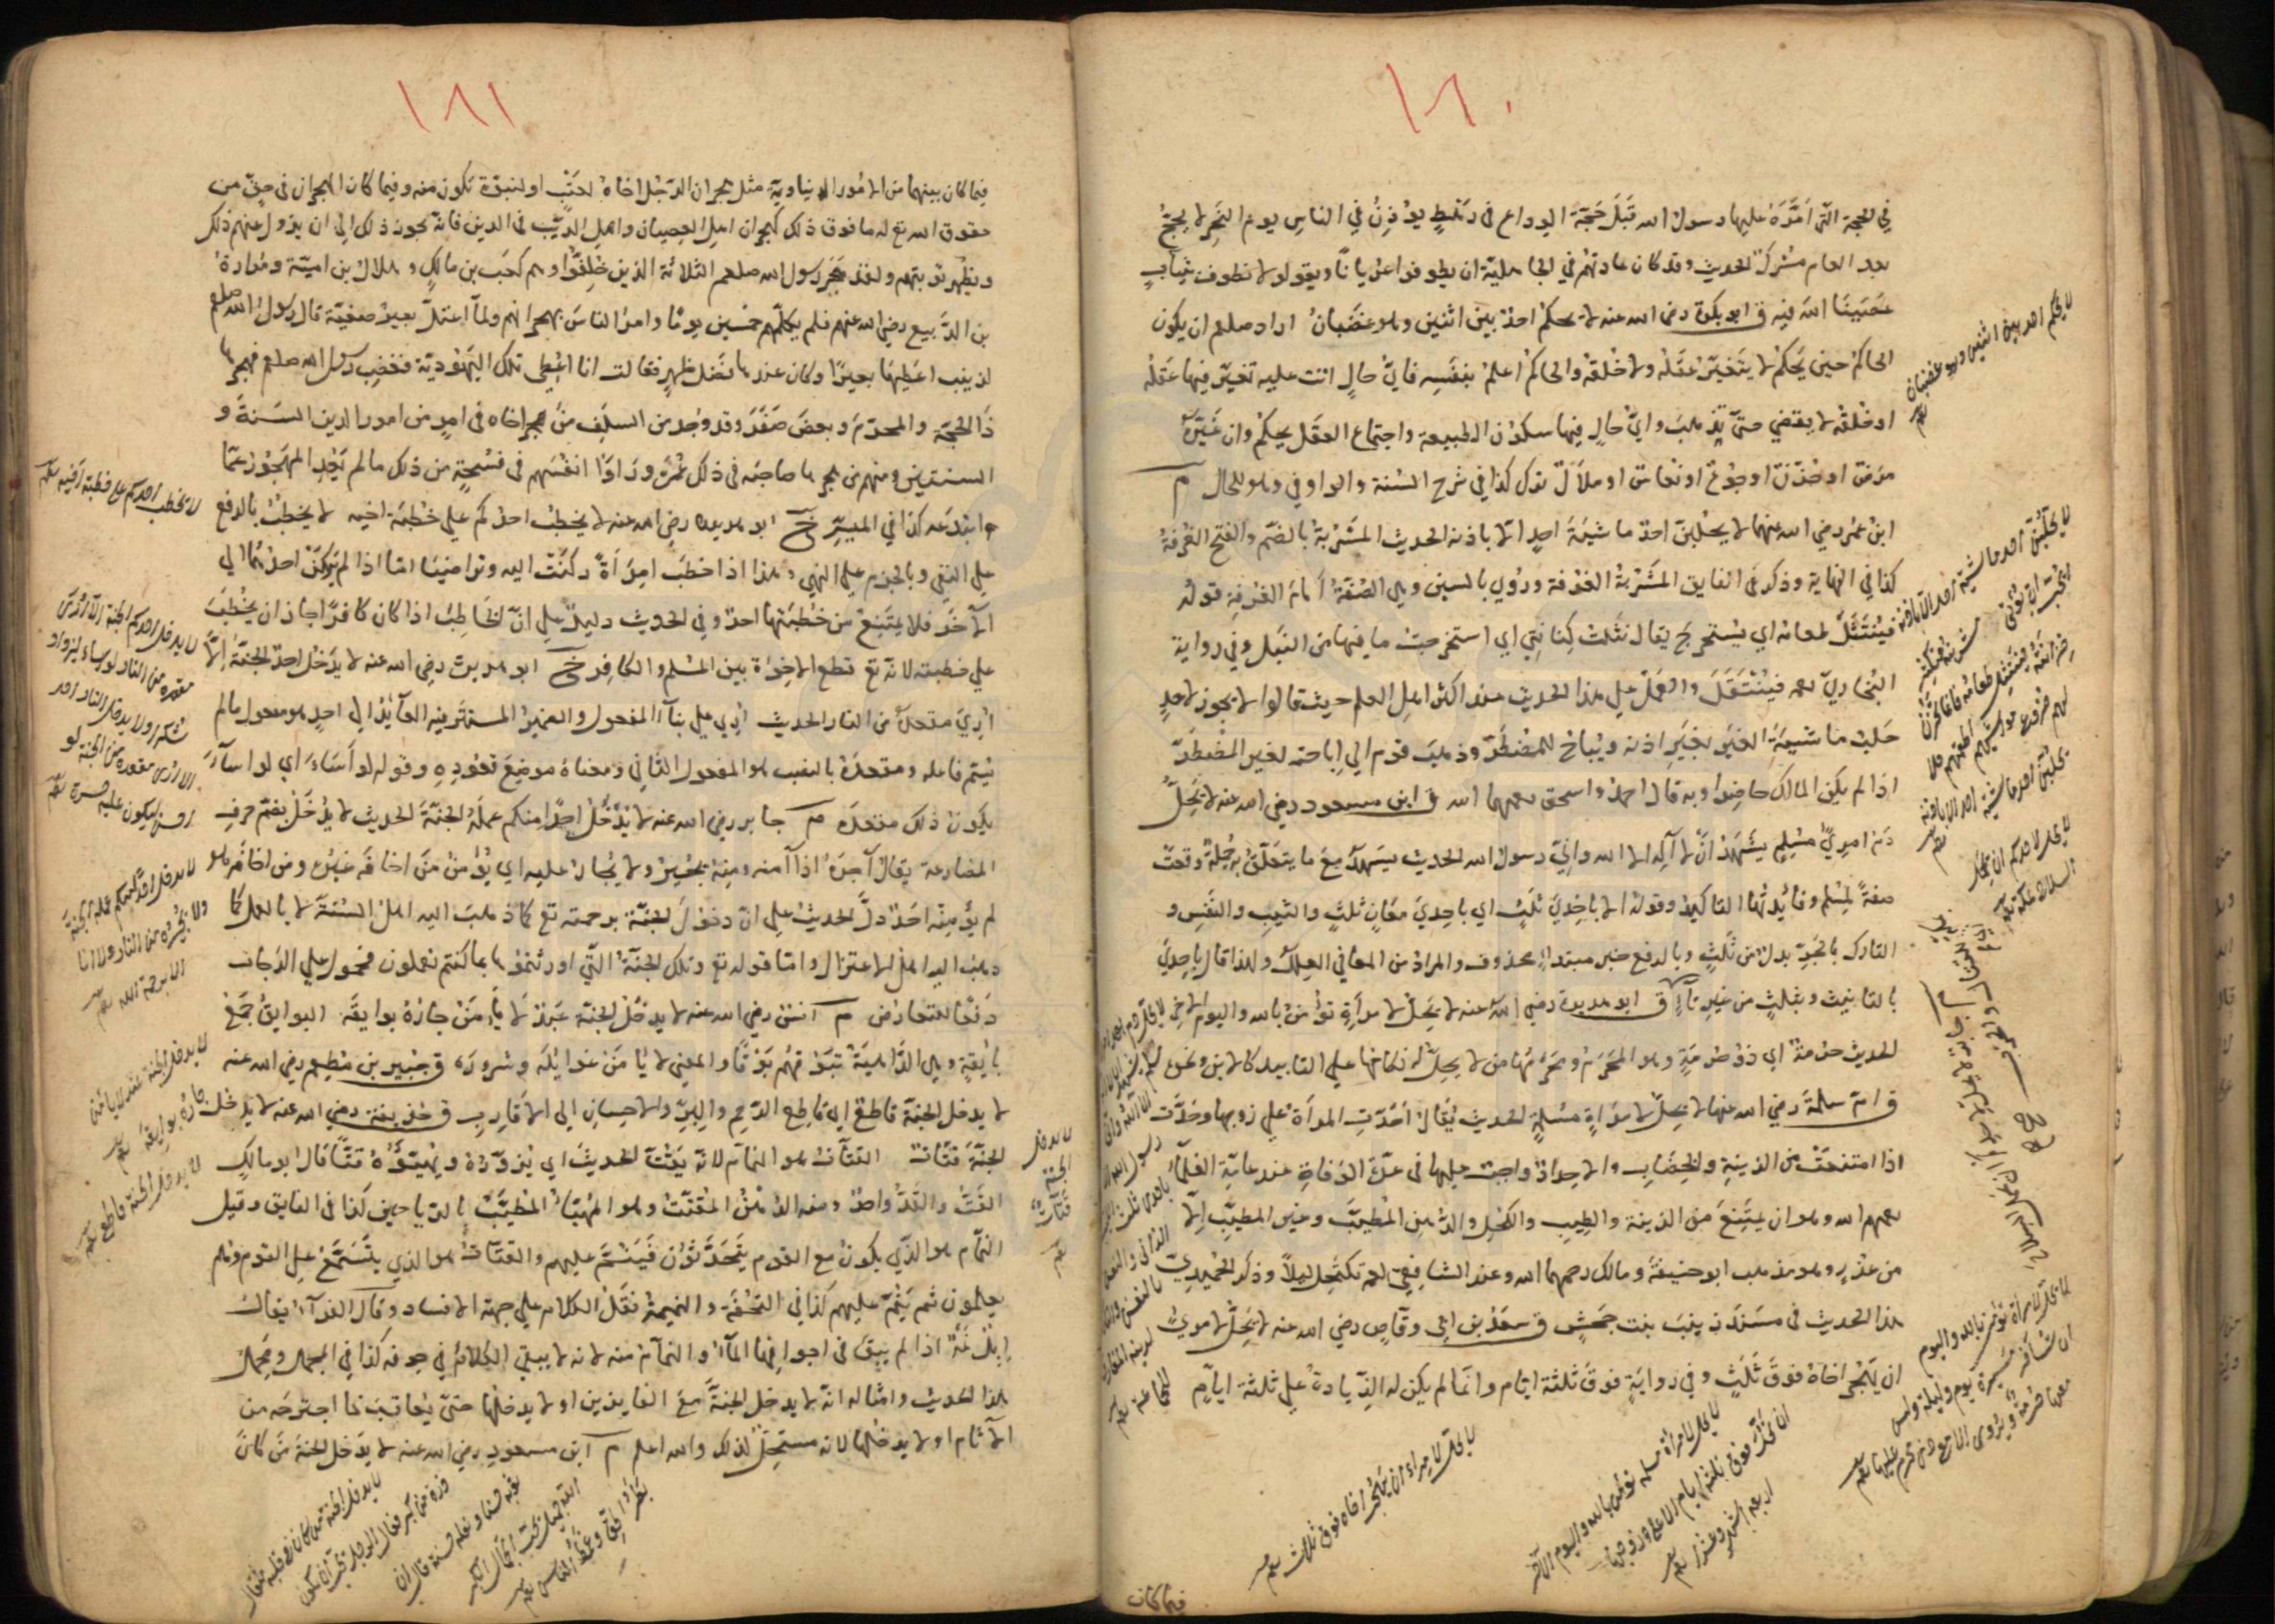 ١٨٠
في الحجة التي امّره عليها رسول الله قبل حجّة الوداع في رهط يؤذن في الناس يوم النحر لا يحج
بعد العام مشرك الحديث وقد كان عادتهم في الجاهلية ان يطوفوا عريانًا ويقولوا لا نطوف بثياب
عصينا الله فيه ق ابو بكرة رضي الله عنه لا يحكم احد بين اثنين وهو غضبان اراد صلعم ان يكون
الحاكم حين يحكم لا يتغيّر عقله ولا خلقه والحاكم اعلم بنفسه فايّ حال اتت عليه تغيّر فيها عقله
او خلقه لا يقضي حتى يذهب وايّ حال فيها سكون الطبيعة واجتماع العقل يحكم وان غيّره
مرض او حزن او جوع او نعاس او ملال ترك كذا في شرح السنة والواو في وهو للحال م
ابن عمر رضي الله عنهما لا يحلبنّ احد ماشية احد الا باذنه الحديث المشربة بالضم والفتح الغرفة
كذا في النهاية وذكر في الفايق المشربة الغرفة وروي بالسين وهي الصفة امام الغرفة قوله
فينتثل طعامه اي يستخرج يقال نثلت كنانتي اي استخرجت ما فيها من النبل وفي رواية
البخاري رحمه فينتقل والعمل على هذا الحديث عند اكثر اهل العلم حيث قالوا لا يجوز لاحد
حلب ماشية الغير بغير اذنه ويباح للمضطرّ وذهب قوم الى اباحته لغير المضطرّ
اذا لم يكن المالك حاضرا وبه قال احمد واسحق رحمهما الله ق ابن مسعود رضي الله عنه لا يحلّ
دم امرئ مسلم يشهد ان لا اله الا الله واني رسول الله الحديث يشهد مع ما يتعلق به جملة وقعت
صفة لمسلم وفائدتها التاكيد وقوله الا باحدى ثلث اي باحدى معان ثلث والثيب والنفس و
التارك بالجر بدل من ثلث وبالرفع خبر مبتدا محذوف والمراد من المعاني العلل ولهذا قال باحدى
بالتانيث وبثلث من غير تاء ق ابو هريرة رضي الله عنه لا يحل لامرأة تؤمن بالله واليوم الاخر
الحديث حرمة اي ذو حرمة وهو المحرم ومحرمها من لا يحل له نكاحها على التابيد كالابن ونحوه
ق ام سلمة رضي الله عنها لا يحل لامراة مسلمة الحديث يقال احدّت المرأة على زوجها وحدّت
اذا امتنعت من الزينة والخضاب والاحداد واجب عليها في عدّة الوفاة عند عامة العلماء
رحمهم الله وهو ان يمتنع من الزينة والطيب والكحل والدهن المطيب وغير المطيب الا
من عذر وهو مذهب ابو حنيفة ومالك رحمهما الله وعند الشافعي رحمه تكتحل ليلاً وذكر الحميدي
هذا الحديث في مسند زينب بنت جحش ق سعد بن ابي وقاص رضي الله عنه لا يحل لامرئ
ان يهجر اخاه فوق ثلث وفي رواية فوق ثلثة ايام وانما لم يكن له الزيادة على ثلثة ايام
فيما كان
لا يحكم احد بين اثنين وهو غضبان
لا يحلبنّ احد ماشية احد الا باذنه
لا يحل لامرأة تؤمن بالله واليوم
لا يحل لامرأة مسلمة تؤمن بالله واليوم الآخر
ان تحدّ فوق ثلثة ايام الا على زوجها
اربعة اشهر وعشرا
لا يحل لامرئ ان يهجر اخاه فوق ثلاث
١٨١
فيما كان بينهما من الامور الدنياوية مثل هجران الرجل اخاه لعتب او لنبوة تكون منه وفيما كان الهجران في حق من
حقوق الله تع له ما فوق ذلك كهجران اهل العصيان واهل الريب في الدين فانه يجوز ذلك الى ان يزول عنهم ذلك
ويظهر توبتهم ولقد هجر رسول الله صلعم الثلاثة الذين خلفوا وهم كعب بن مالك وهلال بن امية ومرارة
بن الربيع رضي الله عنهم فلم يكلمهم خمسين يومًا وامر الناس بهجرانهم ولما اعتل بعير صفية قال رسول الله صلعم
لزينب اعطيها بعيرًا وكان عندها فضل ظهر فقالت انا اعطي تلك اليهودية فغضب رسول الله صلعم فهجرها
ذا الحجة والمحرم وبعض صفر وقد وجد من السلف من هجر اخاه في امر من امور الدين السنة و
السنتين ومنهم من هجر صاحبه في ذلك عمره وراوا انفسهم في فسحة من ذلك ما لم يجد المهجور عما
ابتدعه كذا في الميسر خ ابو هريرة رضي الله عنه لا يخطب احدكم على خطبة اخيه لا يخطب بالرفع
على النفي وبالجزم على النهي وهذا اذا خطب امرأة ركنت اليه وتراضيا اما اذا لم يركن احدهما الى
الآخر فلا يمتنع من خطبتها احد وفي الحديث دليل على ان الخاطب اذا كان كافرًا جاز ان يخطب
على خطبته لانه تع قطع الاخوة بين المسلم والكافر خ ابو هريرة رضي الله عنه لا يدخل احد الجنة الا
اري مقعده من النار الحديث اري على بناء المفعول والضمير المستتر فيه العائد الى احد هو مفعول ما لم
يسم فاعله ومقعده بالنصب هو المفعول الثاني ومعناه موضع قعوده وقوله لو اساء اي لو اساء
يكون ذلك مقعده م جابر رضي الله عنه لا يدخل احدًا منكم عمله الجنة الحديث لا يدخل بضم حرف
المضارعة يقال اجره اذا آمنه ومنه يجير ولا يجار عليه اي يؤمن من اخافه غيره ومن اخافه هو
لم يؤمنه احد دلّ الحديث على ان دخول الجنة برحمته تع كما ذهب اليه اهل السنة لا بالعمل كما
ذهب اليه اهل الاعتزال واما قوله تع وتلك الجنة التي اورثتموها بما كنتم تعملون فمحمول على الدرجات
دفعًا للتعارض م انس رضي الله عنه لا يدخل الجنة عبد لا يأمن جاره بوايقه البوايق جمع
بائقة وهي الداهية تبوقهم بوقًا والمعنى لا يأمن غوائله وشروره ق جبير بن مطعم رضي الله عنه
لا يدخل الجنة قاطع اي قاطع الرحم والبر والاحسان الى الاقارب ق حذيفة رضي الله عنه لا يدخل
الجنة قتات القتات هو النمام لانه يقتّ الحديث اي يزوره ويهيئه قتًّا قال ابو مالك
القتّ والقدّ واحد ومنه الدهن المقتّت وهو المهيّأ المطيّب بالرياحين كذا في الفايق وقيل
النمام هو الذي يكون مع القوم يتحدثون فينمّ عليهم والقتات هو الذي يتسمّع على القوم وهم لا
يعلمون ثم ينمّ عليهم كذا في التحفة والنميمة نقل الكلام على جهة الافساد وقال الفراء يقال
ابل نمّة اذا لم يبق في اجوافها الماء والنمام منه لانه لا يبقي الكلام في جوفه كذا في المجمل ومحمل
هذا الحديث وامثاله انه لا يدخل الجنة مع الفايزين او لا يدخلها حتى يعاقب بما اجترحه من
الآثام او لا يدخلها لانه مستحل لذلك والله اعلم م ابن مسعود رضي الله عنه لا يدخل الجنة من كان
لا يخطب احدكم على خطبة اخيه
لا يدخل احدكم الجنة الا اري
مقعده من النار لو اساء ليزداد
شكرا ولا يدخل النار احد
الا اري مقعده من الجنة لو
احسن ليكون عليه حسرة
لا يدخل احدًا منكم عمله الجنة
ولا يجيره من النار ولا انا
الا برحمة الله
لا يدخل الجنة عبد لا يأمن
جاره بوايقه
لا يدخل الجنة قاطع
لا يدخل
الجنة
قتات
لا يدخل الجنة من كان في قلبه مثقال
ذرة من كبر فقال الرجل يحب ان يكون
ثوبه حسنا ونعله حسنة قال ان
الله جميل يحب الجمال الكبر
بطر الحق وغمط الناس